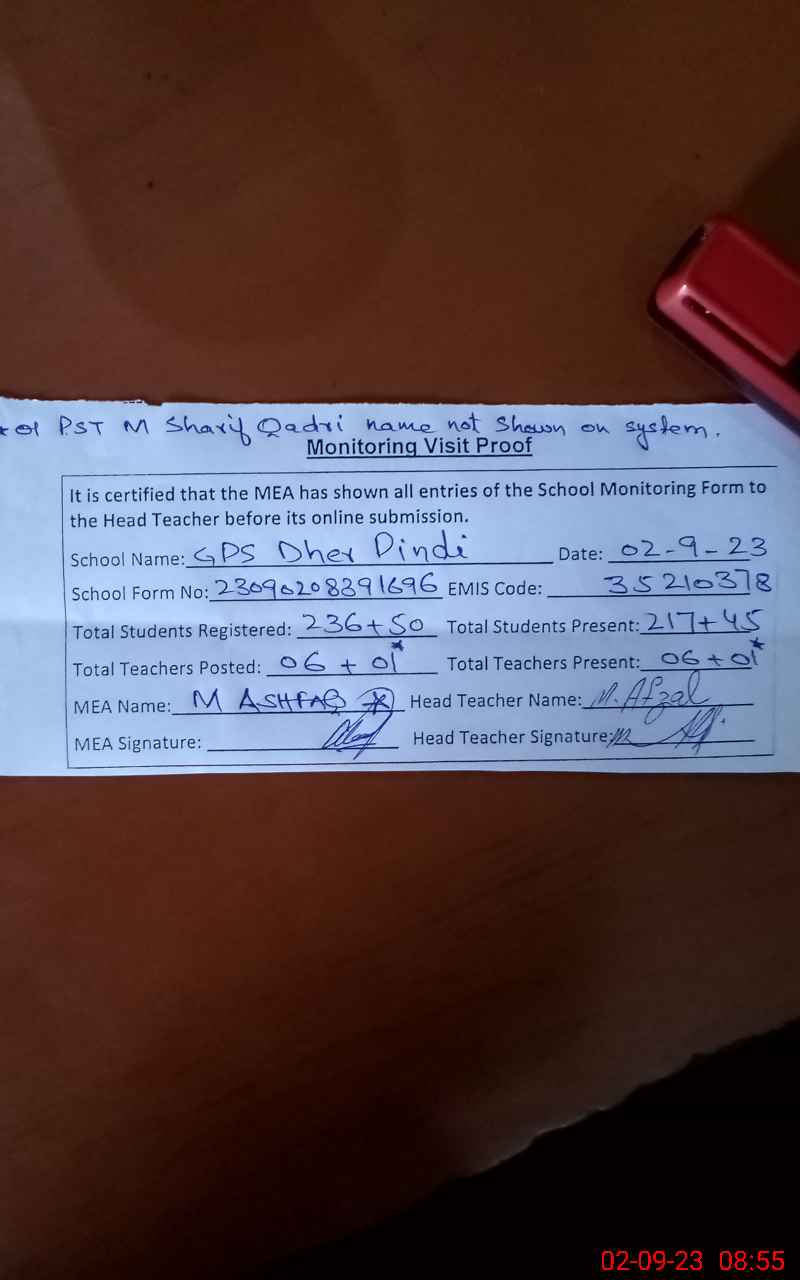 * 01 PST M Sharif Qadri name not Shown on system.
Monitoring Visit Proof
It is certified that the MEA has shown all entries of the School Monitoring Form to
the Head Teacher before its online submission.
School Name: GPS Dher Pindi Date: 02-9-23
School Form No: 23090208391696 EMIS Code: 35210378
Total Students Registered: 236+50 Total Students Present: 217+45
Total Teachers Posted: 06 + 01* Total Teachers Present: 06 + 01*
MEA Name: M ASHFAQ Head Teacher Name: M. Afzal
MEA Signature: Head Teacher Signature:
02-09-23 08:55